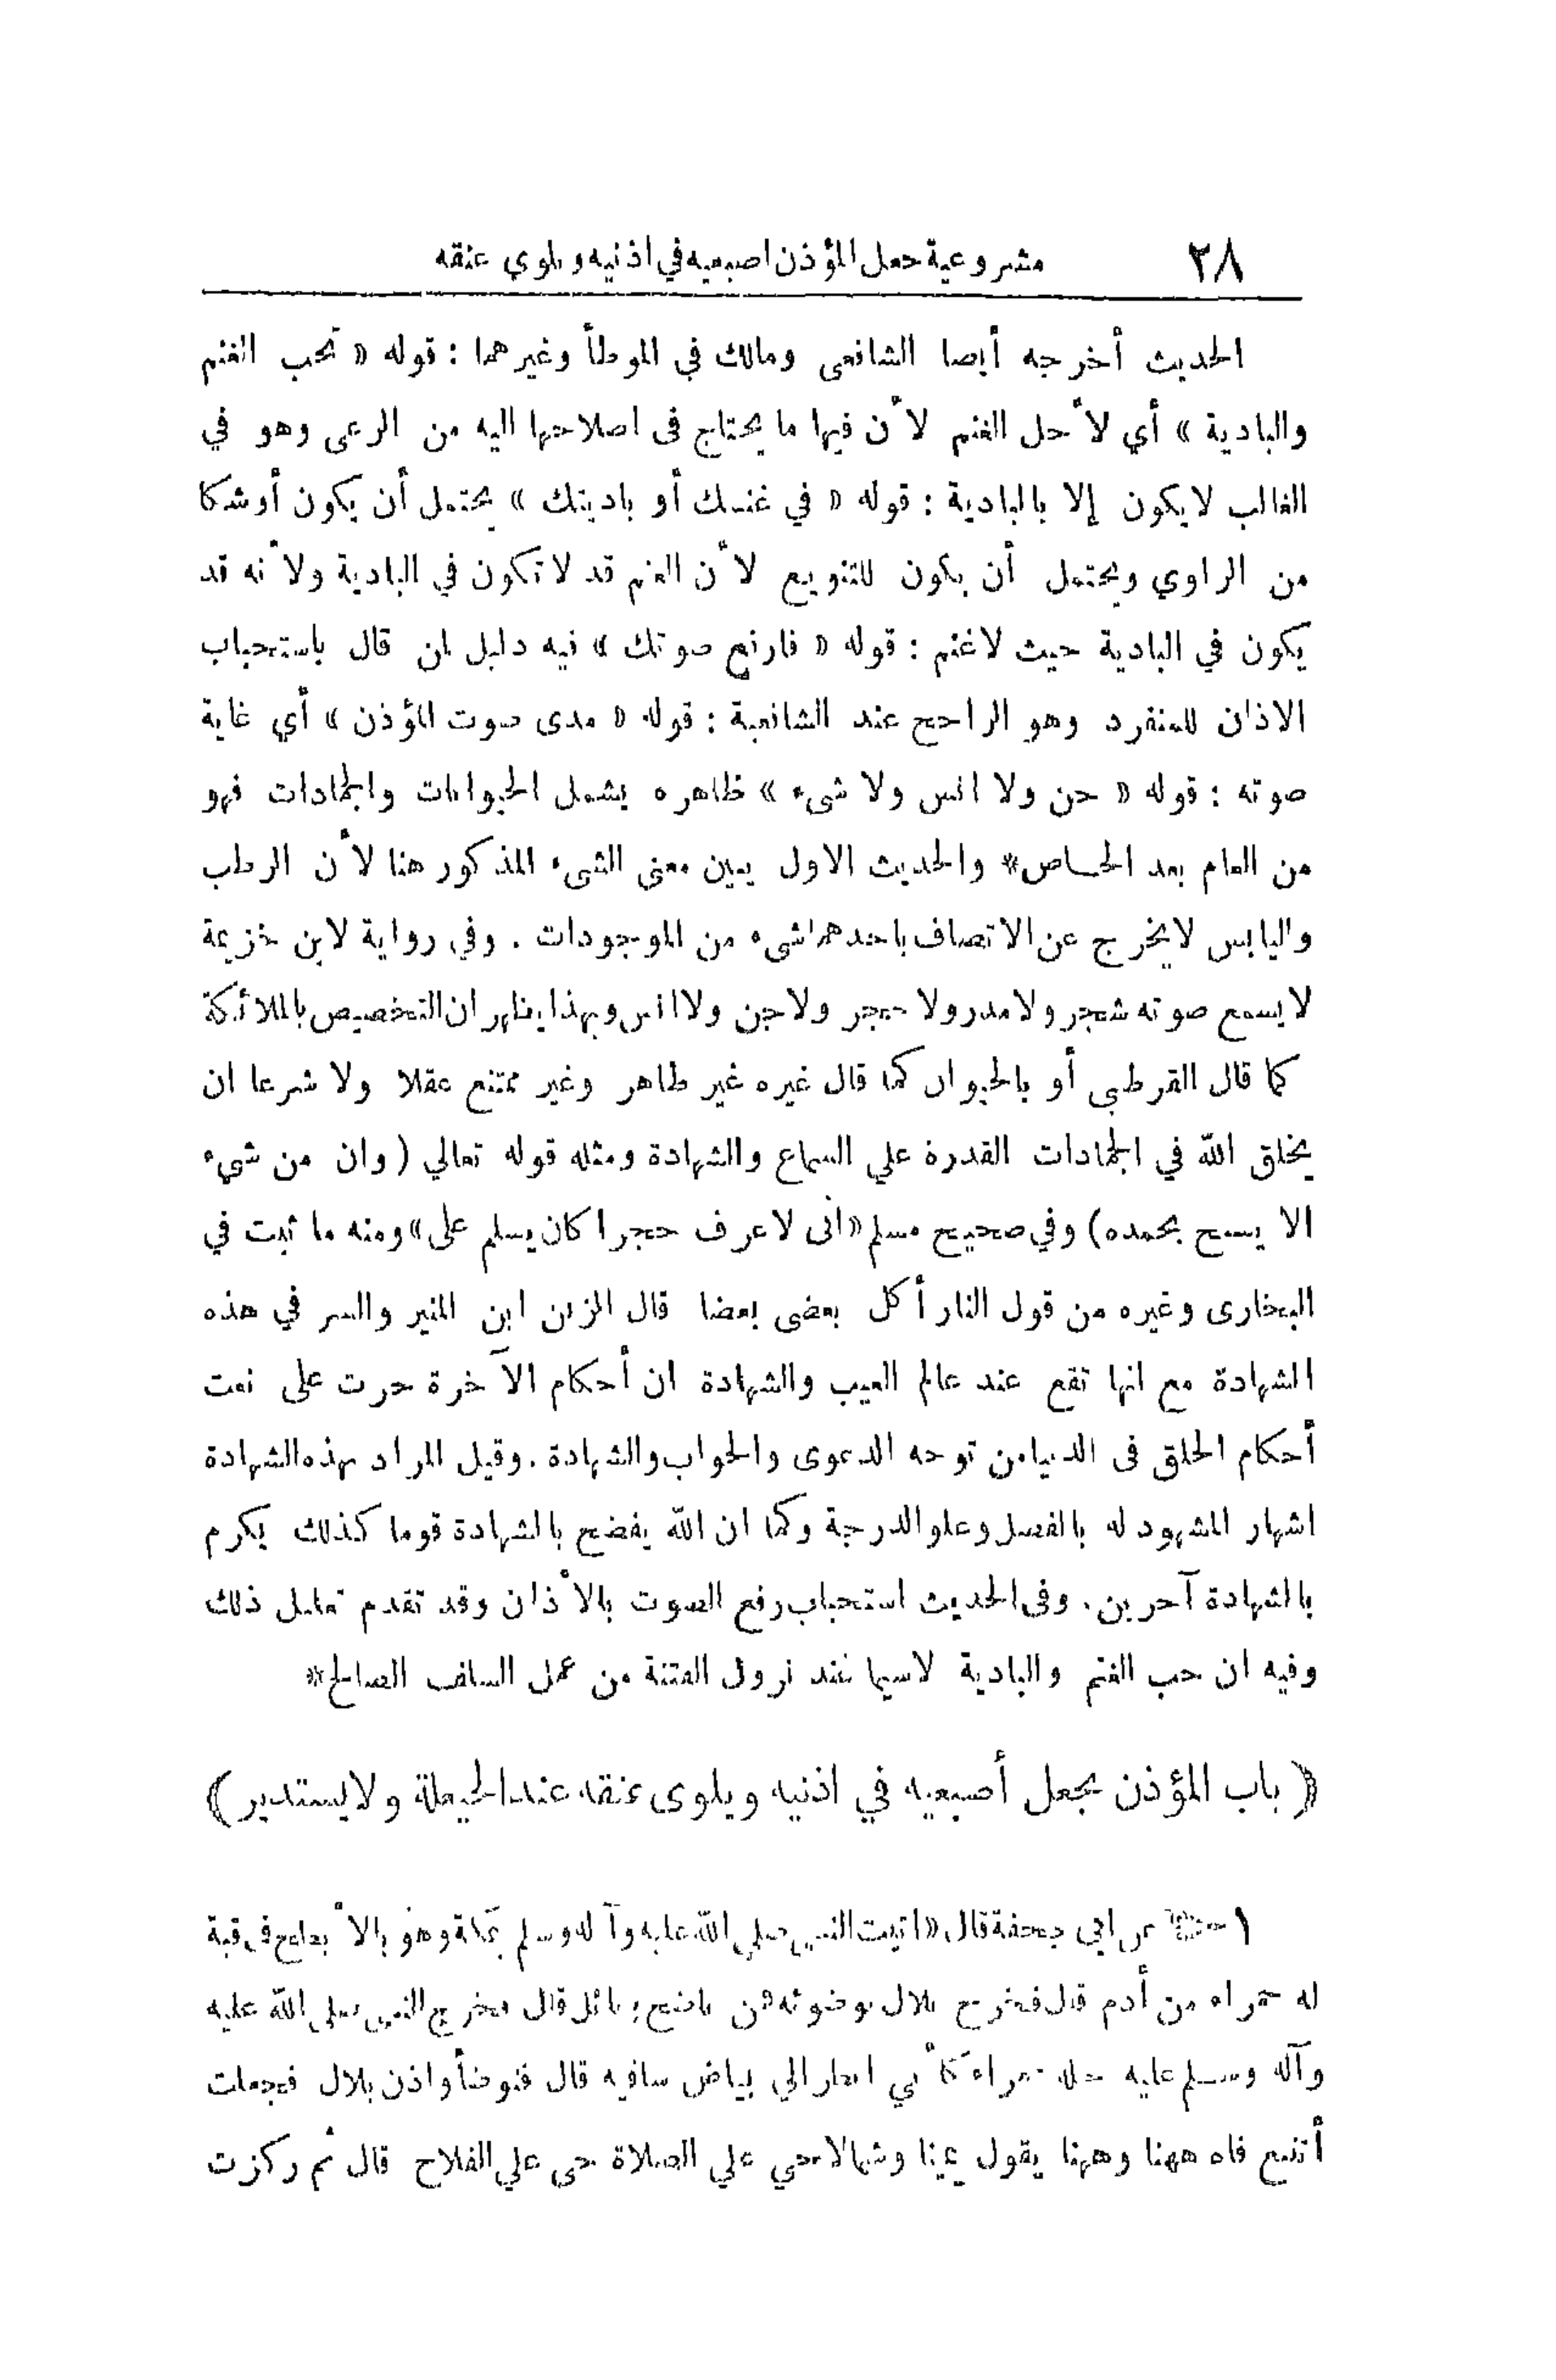 ٢٨ مشروعية جعل المؤذن اصبعيه في اذنيه ويلوي عنقه
الحديث أخرجه أيضا الشافعى ومالك في الموطأ وغيرهما : قوله « تحب الغنم
والبادية » أي لأجل الغنم لأن فيها ما يحتاج فى اصلاحها اليه من الرعى وهو في
الغالب لايكون إلا بالبادية : قوله « في غنمك أو باديتك » يحتمل أن يكون أوشكا
من الراوي ويحتمل أن يكون للتنويع لأن الغنم قد لاتكون في البادية ولأنه قد
يكون في البادية حيث لاغنم : قوله « فارفع صوتك » فيه دليل لمن قال باستحباب
الاذان للمنفرد وهو الراجح عند الشافعية : قوله « مدى صوت المؤذن » أي غاية
صوته : قوله « جن ولا انس ولا شىء » ظاهره يشمل الحيوانات والجمادات فهو
من العام بعد الخاص* والحديث الاول يبين معنى الشىء المذكور هنا لأن الرطب
واليابس لايخرج عن الاتصاف باحدهما شىء من الموجودات . وفي رواية لابن خزيمة
لايسمع صوته شجر ولا مدر ولا حجر ولا جن ولا انس وبهذا يظهر ان التخصيص بالملائكة
كما قال القرطبى أو بالحيوان كما قال غيره غير ظاهر وغير ممتنع عقلا ولا شرعا ان
يخلق الله في الجمادات القدرة علي السماع والشهادة ومثله قوله تعالي ( وان من شىء
الا يسبح بحمده ) وفي صحيح مسلم « انى لاعرف حجرا كان يسلم على » ومنه ما ثبت في
البخارى وغيره من قول النار أكل بعضى بعضا قال الزين ابن المنير والسر في هذه
الشهادة مع انها تقع عند عالم الغيب والشهادة ان أحكام الآخرة جرت على نعت
أحكام الخلق فى الدنيا من توجه الدعوى والجواب والشهادة . وقيل المراد بهذه الشهادة
اشهار المشهود له بالفضل وعلو الدرجة وكما ان الله يفضح بالشهادة قوما كذلك يكرم
بالشهادة آخرين . وفى الحديث استحباب رفع الصوت بالأذان وقد تقدم تعليل ذلك
وفيه ان حب الغنم والبادية لاسيما عند نزول الفتنة من عمل السلف الصالح*
﴿ باب المؤذن يجعل أصبعيه في اذنيه ويلوى عنقه عند الحيعلة ولا يستدير ﴾
١ عن ابي جحيفة قال « اتيت النبي صلي الله عليه وآله وسلم بمكة وهو بالأبطح فى قبة
له حمراء من أدم قال فخرج بلال بوضوئه فمن ناضح ونائل قال فخرج النبي صلى الله عليه
وآله وسلم عليه حلة حمراء كأني انظر الي بياض ساقيه قال فتوضأ واذن بلال فجعلت
أتتبع فاه ههنا وههنا يقول يمينا وشمالا حي علي الصلاة حى علي الفلاح قال ثم ركزت